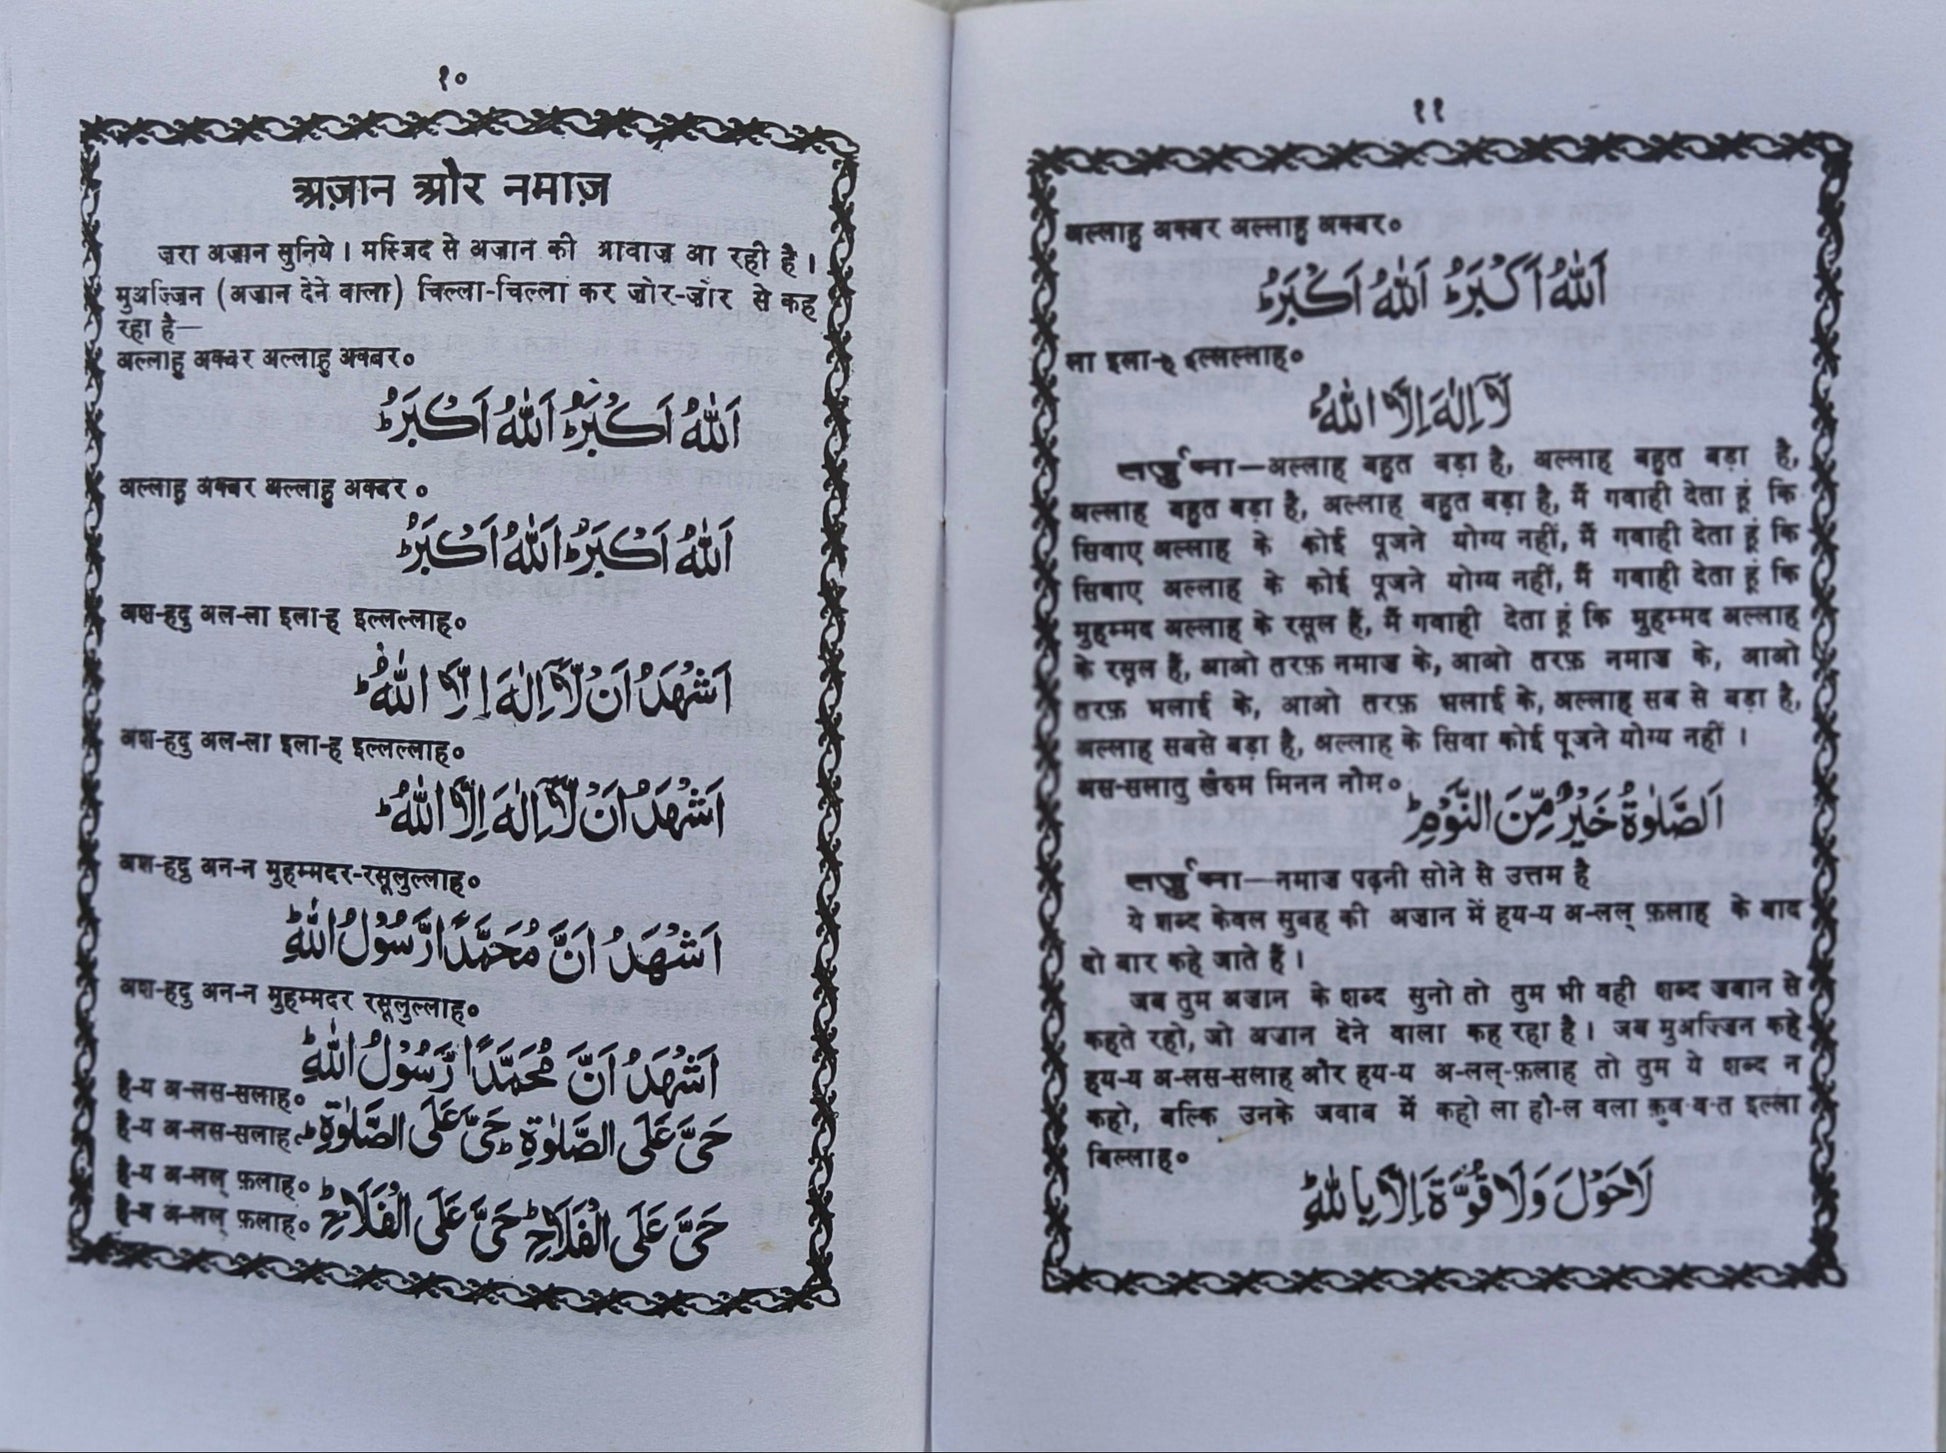 १०
अज़ान और नमाज़
ज़रा अज़ान सुनिये । मस्जिद से अज़ान की आवाज़ आ रही है ।
मुअज़्ज़िन (अज़ान देने वाला) चिल्ला-चिल्ला कर ज़ोर-ज़ोर से कह
रहा है—
अल्लाहु अक्बर अल्लाहु अक्बर०
اَللّٰهُ اَكْبَرُ ؕ اَللّٰهُ اَكْبَرُ ؕ
अल्लाहु अक्बर अल्लाहु अक्बर ०
اَللّٰهُ اَكْبَرُ ؕ اَللّٰهُ اَكْبَرُ ؕ
अश-हदु अल-ला इला-ह इल्लल्लाह०
اَشْهَدُ اَنْ لَّاۤ اِلٰهَ اِلَّا اللّٰهُ ؕ
अश-हदु अल-ला इला-ह इल्लल्लाह०
اَشْهَدُ اَنْ لَّاۤ اِلٰهَ اِلَّا اللّٰهُ ؕ
अश-हदु अन-न मुहम्मदर-रसूलुल्लाह०
اَشْهَدُ اَنَّ مُحَمَّدًا رَّسُوْلُ اللّٰهِ ؕ
अश-हदु अन-न मुहम्मदर रसूलुल्लाह०
اَشْهَدُ اَنَّ مُحَمَّدًا رَّسُوْلُ اللّٰهِ ؕ
है-य अ-लस-सलाह०
है-य अ-लस-सलाह०
حَیَّ عَلَی الصَّلٰوةِ ؕ حَیَّ عَلَی الصَّلٰوةِ ؕ
है-य अ-लल् फ़लाह०
है-य अ-लल् फ़लाह०
حَیَّ عَلَی الْفَلَاحِ ؕ حَیَّ عَلَی الْفَلَاحِ ؕ
११
अल्लाहु अक्बर अल्लाहु अक्बर०
اَللّٰهُ اَكْبَرُ ؕ اَللّٰهُ اَكْبَرُ ؕ
ला इला-ह इल्लल्लाह०
لَاۤ اِلٰهَ اِلَّا اللّٰهُ ؕ
तर्जुमा—अल्लाह बहुत बड़ा है, अल्लाह बहुत बड़ा है,
अल्लाह बहुत बड़ा है, अल्लाह बहुत बड़ा है, मैं गवाही देता हूं कि
सिवाए अल्लाह के कोई पूजने योग्य नहीं, मैं गवाही देता हूं कि
सिवाए अल्लाह के कोई पूजने योग्य नहीं, मैं गवाही देता हूं कि
मुहम्मद अल्लाह के रसूल हैं, मैं गवाही देता हूं कि मुहम्मद अल्लाह
के रसूल हैं, आओ तरफ़ नमाज़ के, आओ तरफ़ नमाज़ के, आओ
तरफ़ भलाई के, आओ तरफ़ भलाई के, अल्लाह सब से बड़ा है,
अल्लाह सबसे बड़ा है, अल्लाह के सिवा कोई पूजने योग्य नहीं ।
अस-सलातु ख़ैरुम मिनन नौम०
اَلصَّلٰوةُ خَیْرٌ مِّنَ النَّوْمِ ؕ
तर्जुमा—नमाज़ पढ़नी सोने से उत्तम है
ये शब्द केवल सुबह की अज़ान में हय-य अ-लल् फ़लाह के बाद
दो बार कहे जाते हैं ।
जब तुम अज़ान के शब्द सुनो तो तुम भी वही शब्द ज़बान से
कहते रहो, जो अज़ान देने वाला कह रहा है । जब मुअज़्ज़िन कहे
हय-य अ-लस-सलाह और हय-य अ-लल्-फ़लाह तो तुम ये शब्द न
कहो, बल्कि उनके जवाब में कहो ला हौ-ल वला क़ुव-व-त इल्ला
बिल्लाह०
لَا حَوْلَ وَلَا قُوَّةَ اِلَّا بِاللّٰهِ